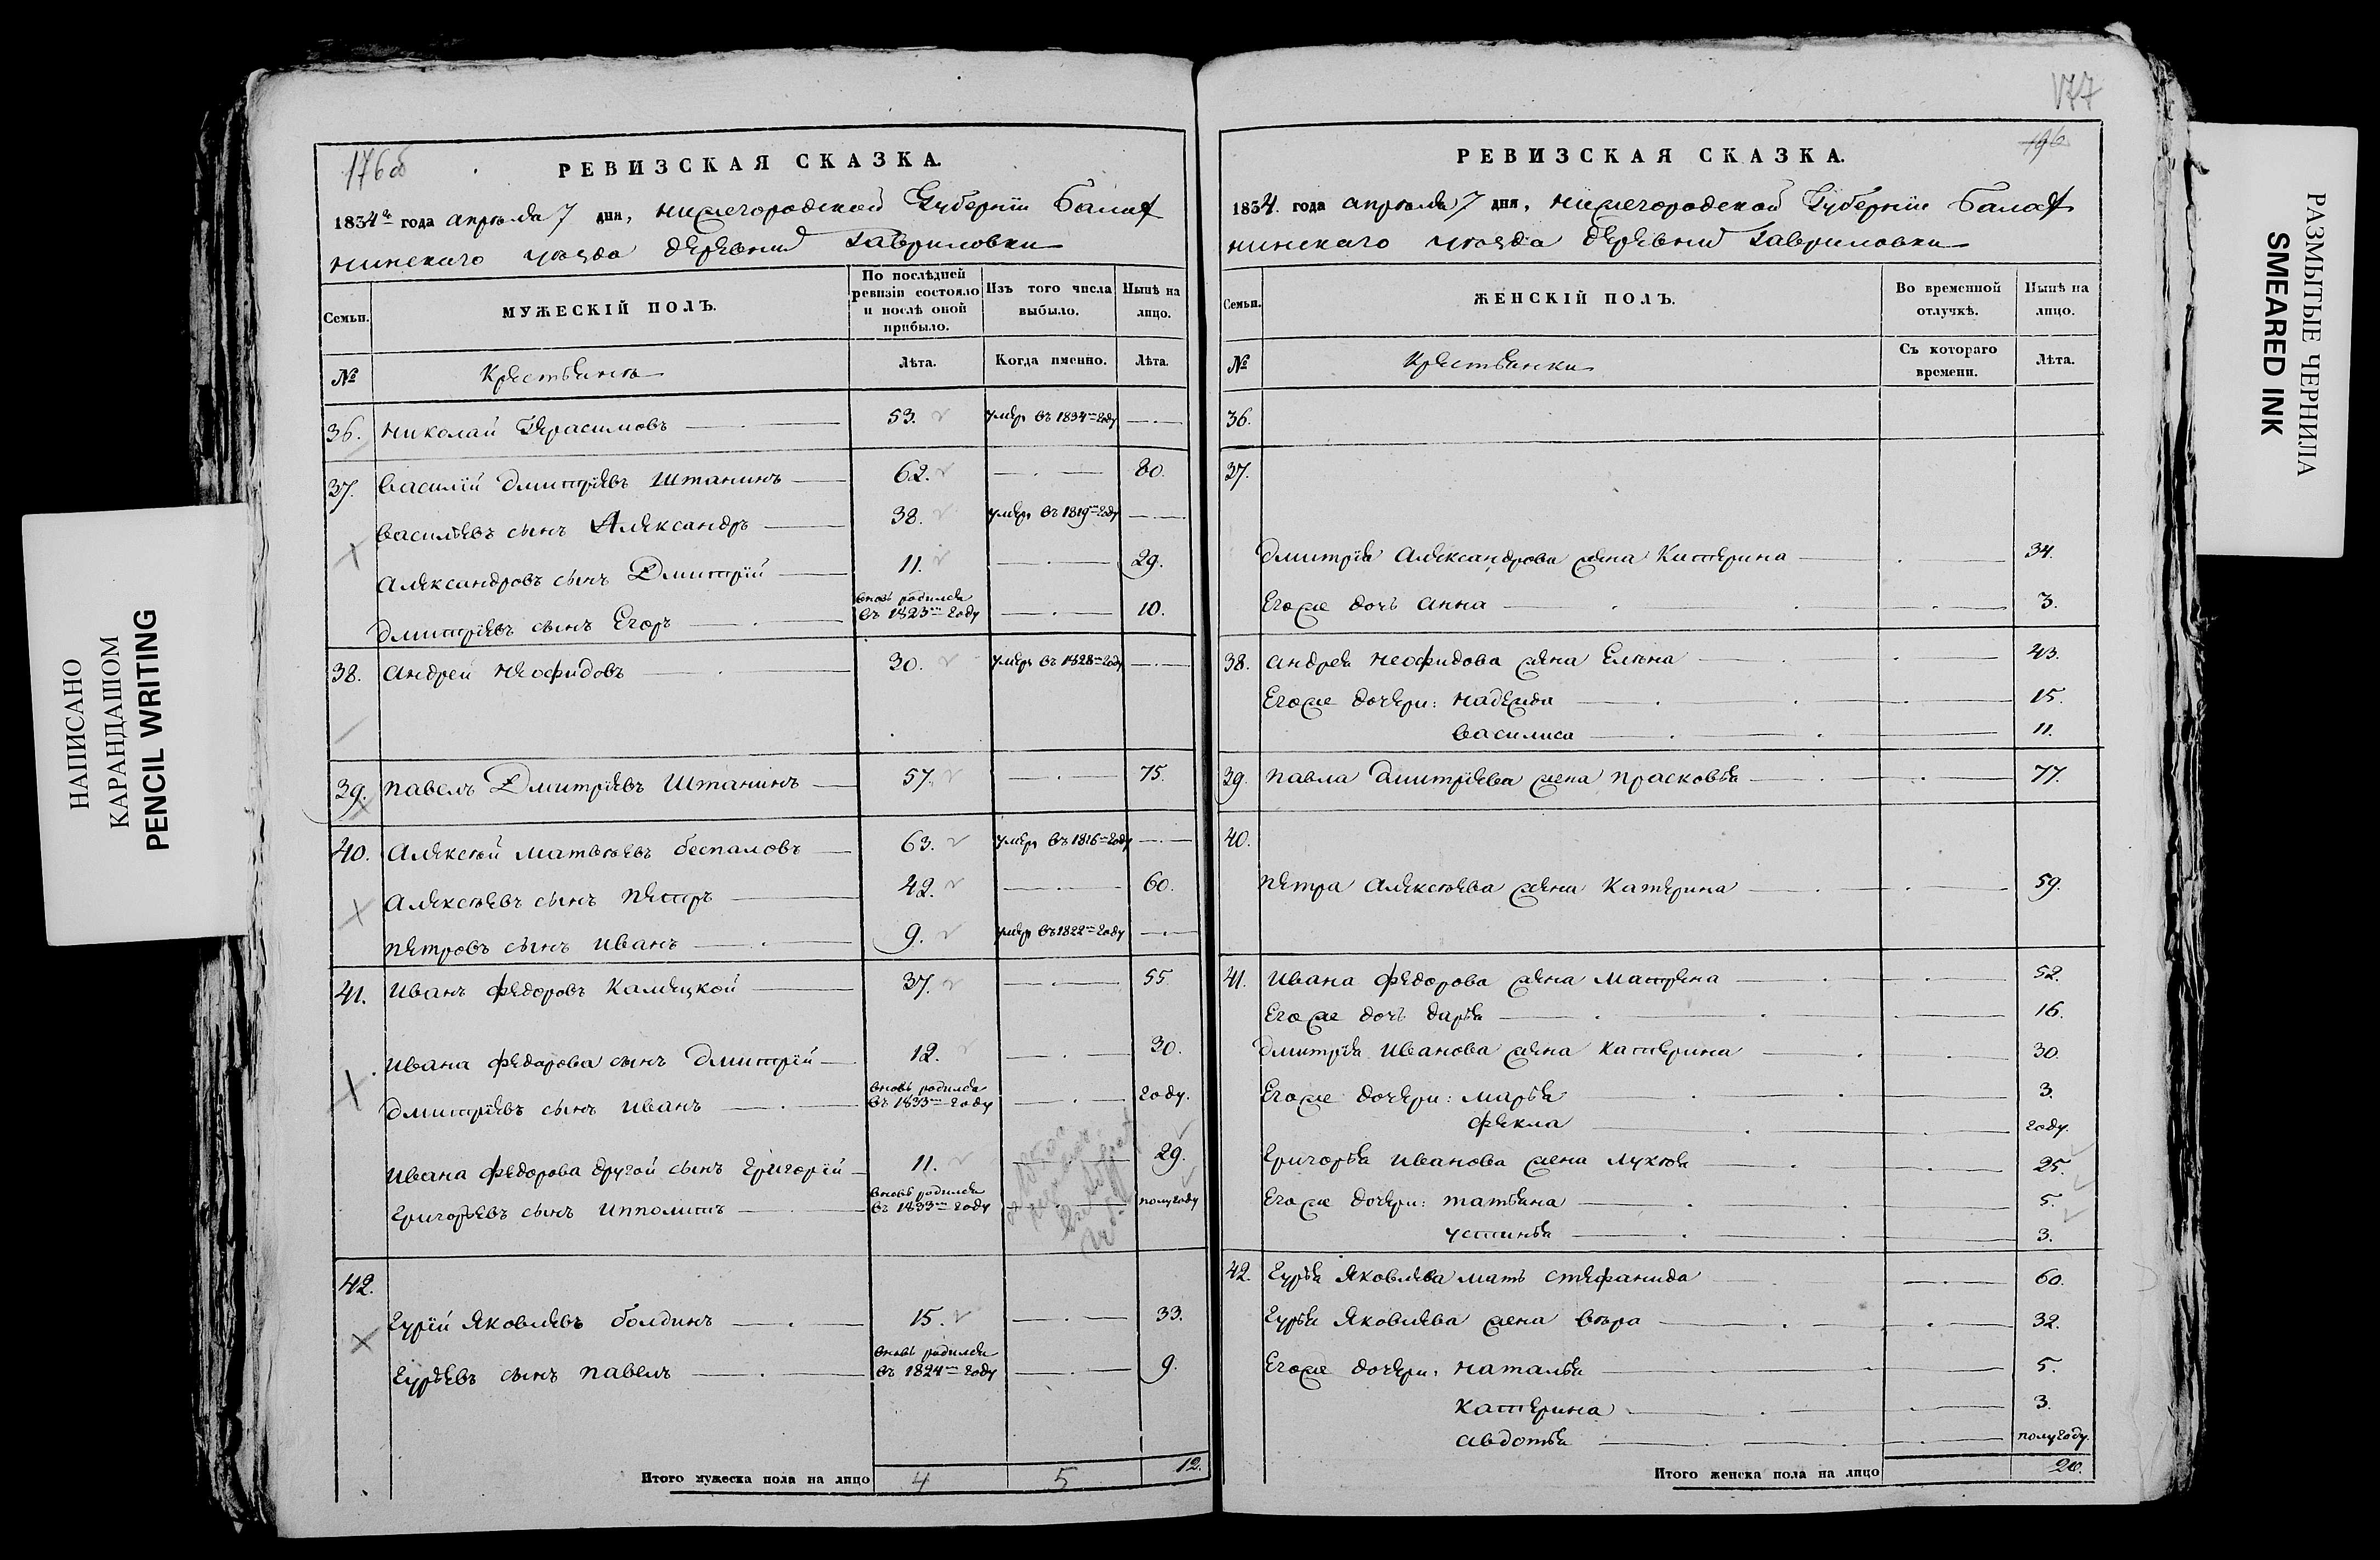 НАПИСАНО
КАРАНДАШОМ
PENCIL WRITING
176об
РЕВИЗСКАЯ СКАЗКА.
1834го года апреля 7 дня, нижегородской Губернiи Балах
нинского уѣзда деревни Гавриловки
Семьи.
МУЖЕСКIЙ ПОЛЪ.
По послѣдней ревизiи состояло и послѣ оной прибыло.
Изъ того числа выбыло.
Нынѣ на лицо.
№
Крестьянъ
Лѣта.
Когда именно.
Лѣта.
36. Николай Герасимовъ 53. умеръ въ 1834м году
37. Василiй Дмитрiевъ Штанинъ 62. 80.
Васильевъ сынъ Александръ 38. умеръ въ 1819м году
Александровъ сынъ Дмитрiй 11. 29.
Дмитрiевъ сынъ Егоръ вновь родился въ 1823м году 10.
38. Андрей Неофидовъ 30. умеръ въ 1828м году
39. Павелъ Дмитрiевъ Штанинъ 57. 75.
40. Алексѣй Матвѣевъ Беспаловъ 63. умеръ въ 1816м году
Алексѣевъ сынъ Петръ 42. 60.
Петровъ сынъ Иванъ 9. умеръ въ 1822м году
41. Иванъ Федоровъ Камецкой 37. 55
Ивана Федорова сынъ Дмитрiй 12. 30.
Дмитрiевъ сынъ Иванъ вновь родился въ 1833м году году.
Ивана Федорова другой сынъ Григорiй 11. 29.
Григорьевъ сынъ Ипполитъ вновь родился въ 1833м году полугоду
42.
Гурiй Яковлевъ Болдинъ 15. 33.
Гурьевъ сынъ Павелъ вновь родился въ 1824м году 9.
Итого мужеска пола на лицо 4 5 12.
177
196
РЕВИЗСКАЯ СКАЗКА.
1834. года апреля 7 дня, нижегородской Губернiи Балах
нинского уѣзда деревни Гавриловки
Семьи.
ЖЕНСКIЙ ПОЛЪ.
Во временной отлучкѣ.
Нынѣ на лицо.
№
Крестьянки
Съ котораго времени.
Лѣта.
36.
37.
Дмитрiя Александрова жена Катерина 34.
Егоже дочь Анна 3.
38. Андрея Неофидова жена Елена 43.
Егоже дочери: Надежда 15.
Василиса 11.
39. Павла Дмитрiева жена Прасковья 77.
40.
Петра Алексѣева жена Катерина 59.
41. Ивана Федорова жена Матрена 52.
Егоже дочь Дарья 16.
Дмитрiя Иванова жена Катерина 30.
Егоже дочери: Марья 3.
Фекла году.
Григорья Иванова жена Лукѣя 25.
Егоже дочери: Татьяна 5.
Устинья 3.
42. Гурья Яковлева мать Стефанида 60.
Гурья Яковлева жена Вѣра 32.
Егоже дочери: Наталья 5.
Катерина 3.
Авдотья полугоду.
Итого женска пола на лицо 20.
РАЗМЫТЫЕ ЧЕРНИЛА
SMEARED INK